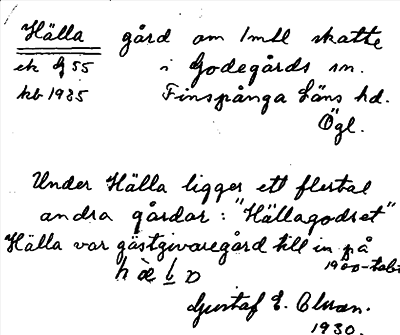 Hälla gård om 1 mtl skatte
ek G 55 i Godegårds sn.
kb 1935 Finspånga läns hd.
Ögl.
Under Hälla ligger ett flertal
andra gårdar: "Hällagodset"
Hälla var gästgivaregård till in på
1900-talet
Gustaf E. Olsson.
1930.